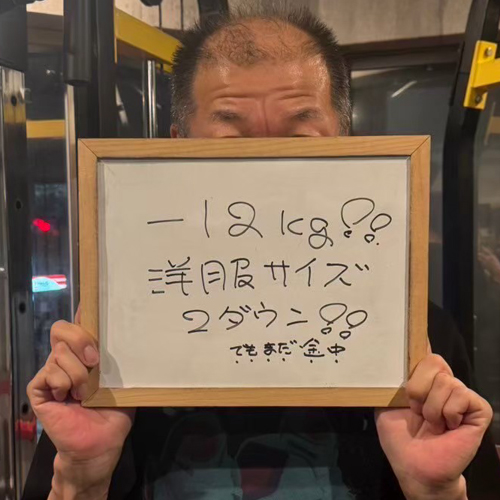 -12kg!!
洋服サイズ
2ダウン!!
でもまだ途中